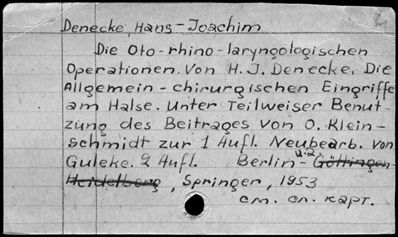 Denecke, Hans-Joachim
Die Oto-rhino-laryngologischen
Operationen. Von H. J. Denecke. Die
Allgemein-chirurgischen Eingriffe
am Halse. Unter Teilweiser Benut-
zung des Beitrages von O. Klein-
schmidt zur 1 Aufl. Neubearb. von
Guleke. 2 Aufl. Berlin- u.a. Göttingen-
Heidelberg, Springer, 1953
см. сл. карт.